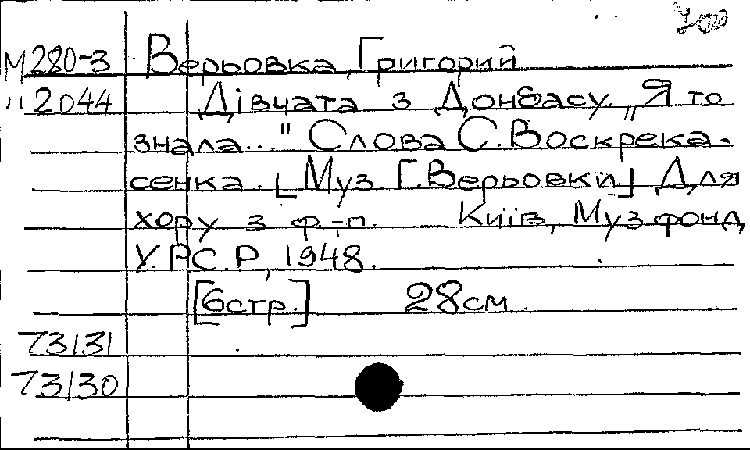 700
М280-3 Верьовка, Григорий
" 2044 Дівчата з Донбасу. „Я то
знала..." Слова С. Воскрека-
сенка. [Муз Г. Верьовки] Для
хору з ф.-п. Київ, Муз фонд
У.Р.С.Р, 1948.
[6стр.] 28см
73131
73130